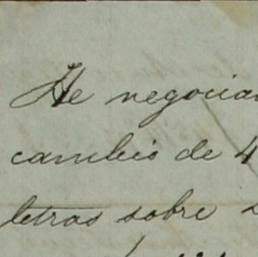 He negocia
cambio de 4
letras sobre